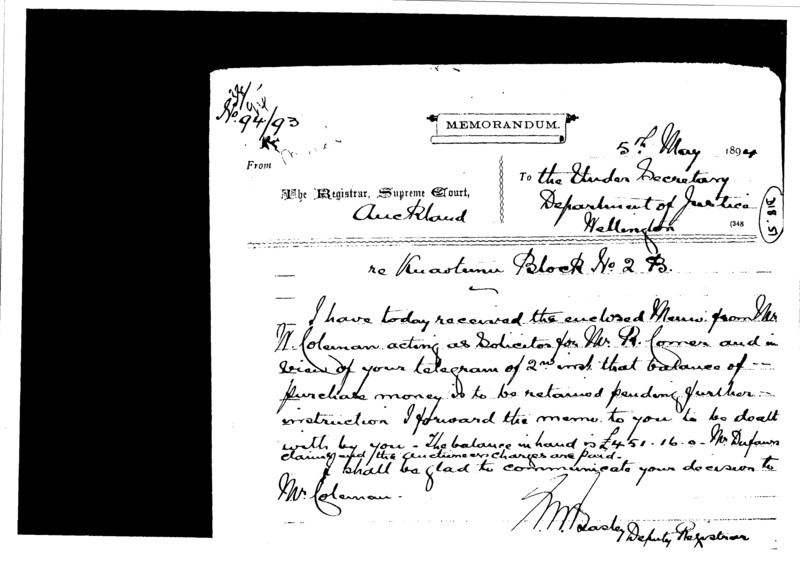 No. 94/93
MEMORANDUM.
5th May 1894
From
The Registrar, Supreme Court,
Auckland
To the Under Secretary
Department of Justice
Wellington
(348
re Kuaotunu Block No 2 B.
I have today received the enclosed Memo. from Mr
W. Coleman acting as Solicitor for Mr R. Comer and in
view of your telegram of 2nd inst. that balance of --
purchase money is to be retained pending further -
instruction I forward the memo to you to be dealt
with by you - The balance in hand is £451.16.0 - Mr Dufaurs
claim and the auctioneers charges are paid.
I shall be glad to communicate your decision to
Mr Coleman.
Deputy Registrar